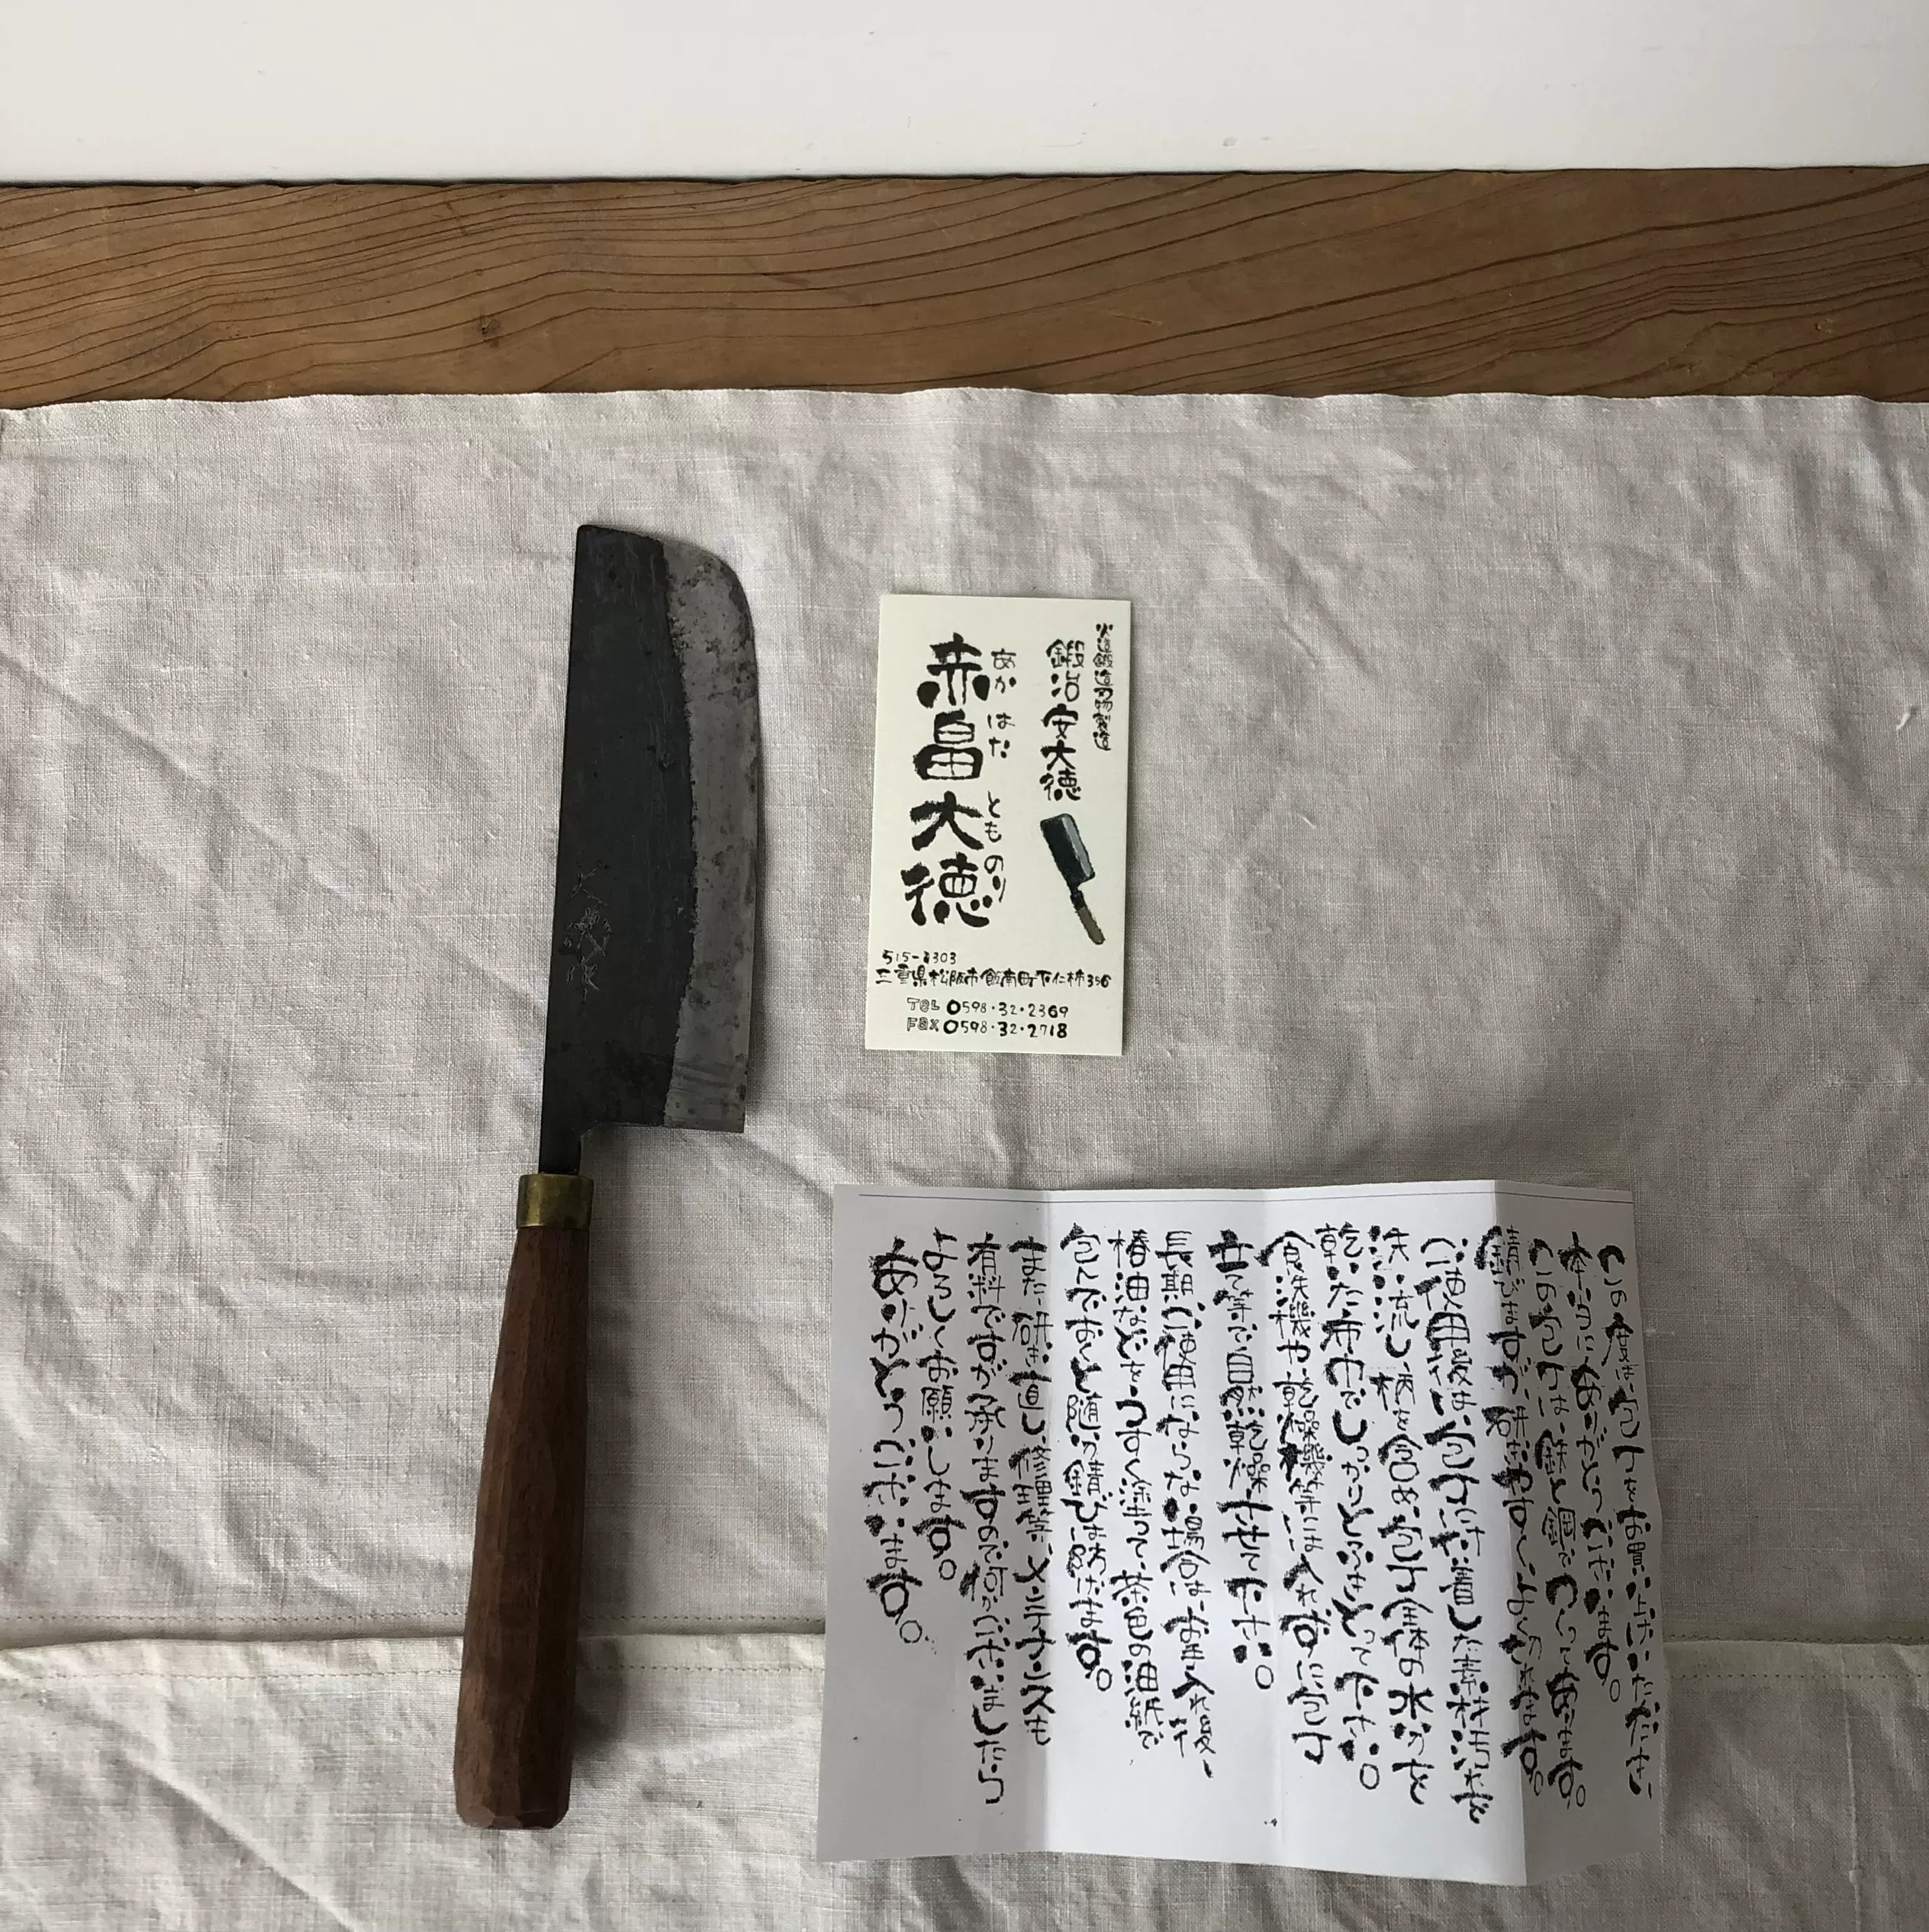 大徳作
火造鍛造刃物製造
鍛冶 安大徳
あか はた とものり
赤畠大徳
三重県松阪市飯南町下仁柿356
TEL 0598・32・2369
FAX 0598・32・2718
この度は、包丁をお買い上げいただき、
本当にありがとうございます。
この包丁は、鉄と鋼でつくっております。
錆びますが、研ぎやすく、よく切れます。
ご使用後は、包丁に付着した素材汚れを
洗い流し、柄を含め、包丁全体の水分を
乾いた布巾でしっかりとふきとって下さい。
食洗機や、乾燥機等には入れずに包丁
立て等で自然乾燥させて下さい。
長期ご使用にならない場合は、お手入れ後、
椿油などをうすく塗って、茶色の油紙で
包んでおくと随分錆びは防げます。
また、研ぎ直し、修理等、メンテナンスも
有料ですが承りますので何かございましたら
よろしくお願いします。
ありがとうございます。